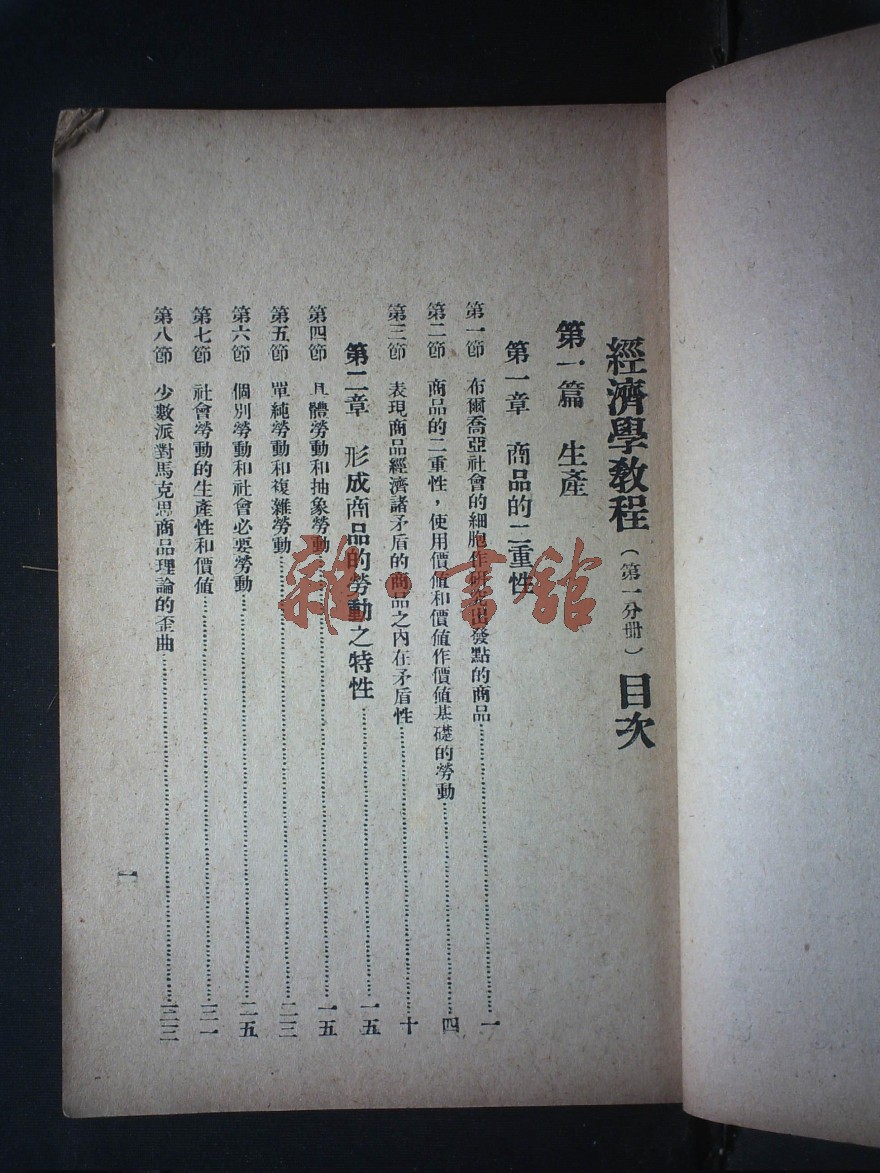 經濟學教程（第一分册）目次
第一篇　生產
第一章　商品的二重性
第一節　布爾喬亞社會的細胞作研究出發點的商品………一
第二節　商品的二重性，使用價値和價値作價値基礎的勞動………四
第三節　表現商品經濟諸矛盾的商品之內在矛盾性………十
第二章　形成商品的勞動之特性………一五
第四節　具體勞動和抽象勞動………一五
第五節　單純勞動和複雜勞動………二三
第六節　個別勞動和社會必要勞動………二五
第七節　社會勞動的生產性和價値………三一
第八節　少數派對馬克思商品理論的歪曲………三三
一
雜·書館